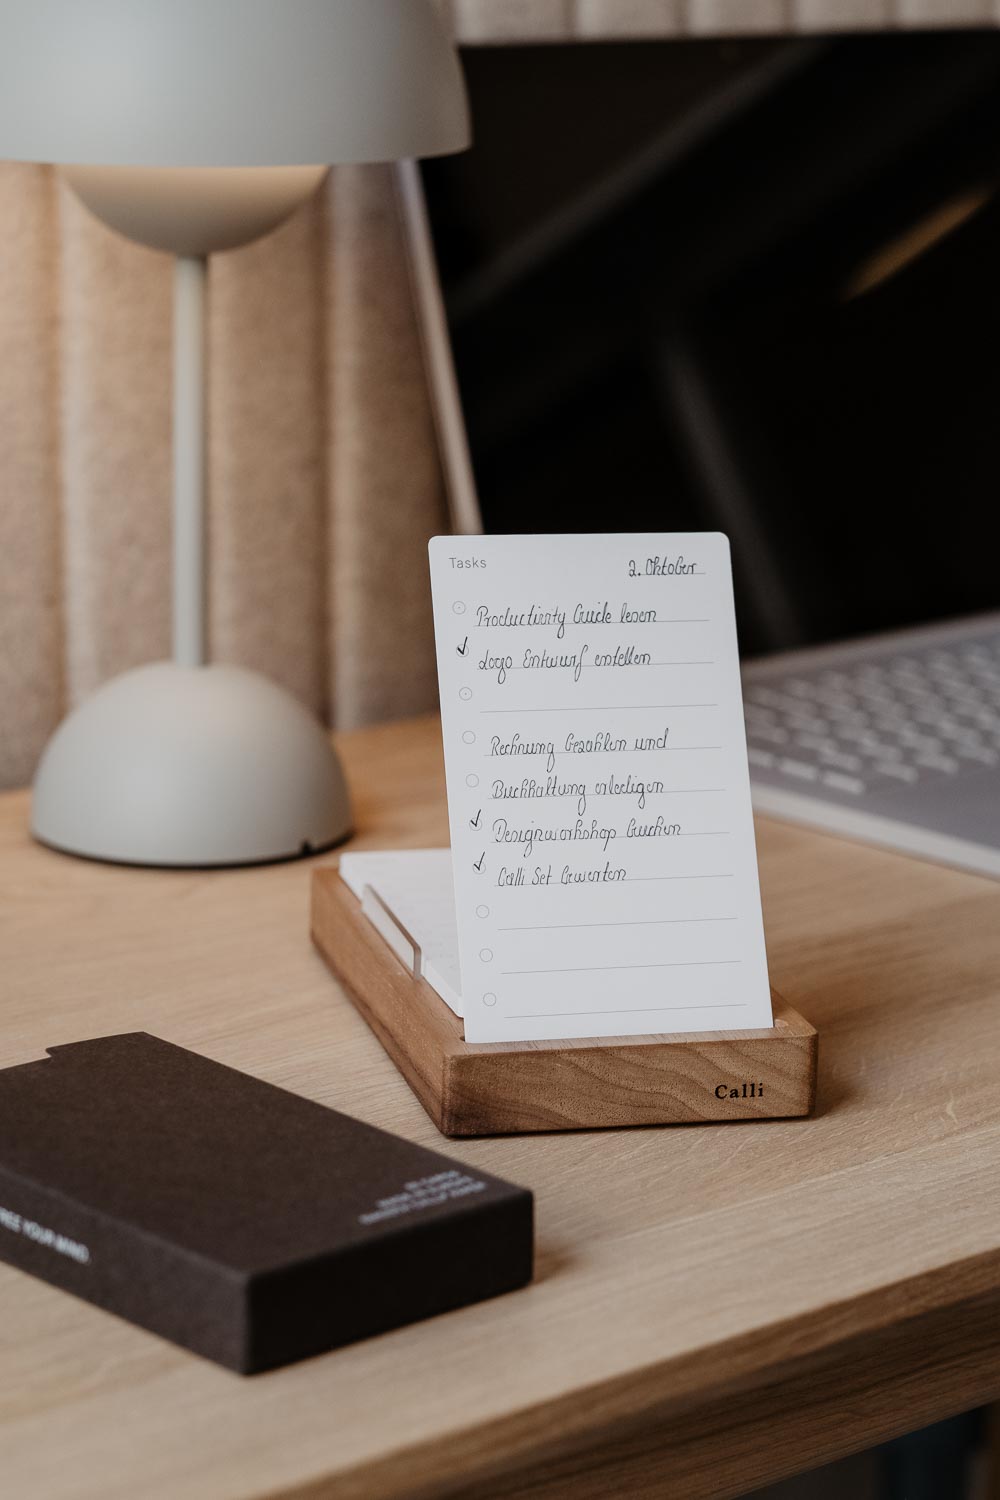 Tasks
2. Oktober
Productivity Guide lesen
Logo Entwurf erstellen
Rechnung bezahlen und
Buchhaltung erledigen
Designworkshop buchen
Calli Set bewerten
Calli
FREE YOUR MIND.